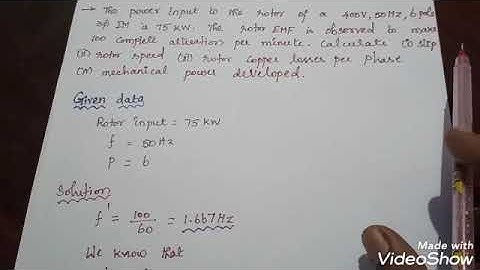 → The power input to the rotor of a 400V, 50Hz, 6 pole
3ϕ IM is 75 KW. The rotor EMF is observed to make
100 complete alterations per minute. Calculate (i) slip
(ii) rotor speed (iii) rotor copper losses per phase
(iv) mechanical power developed.
Given data
Rotor input = 75 KW
f = 50 Hz
P = 6
Solution
f' = 100/60 = 1.667 Hz
We know that
Made with
VideoShow